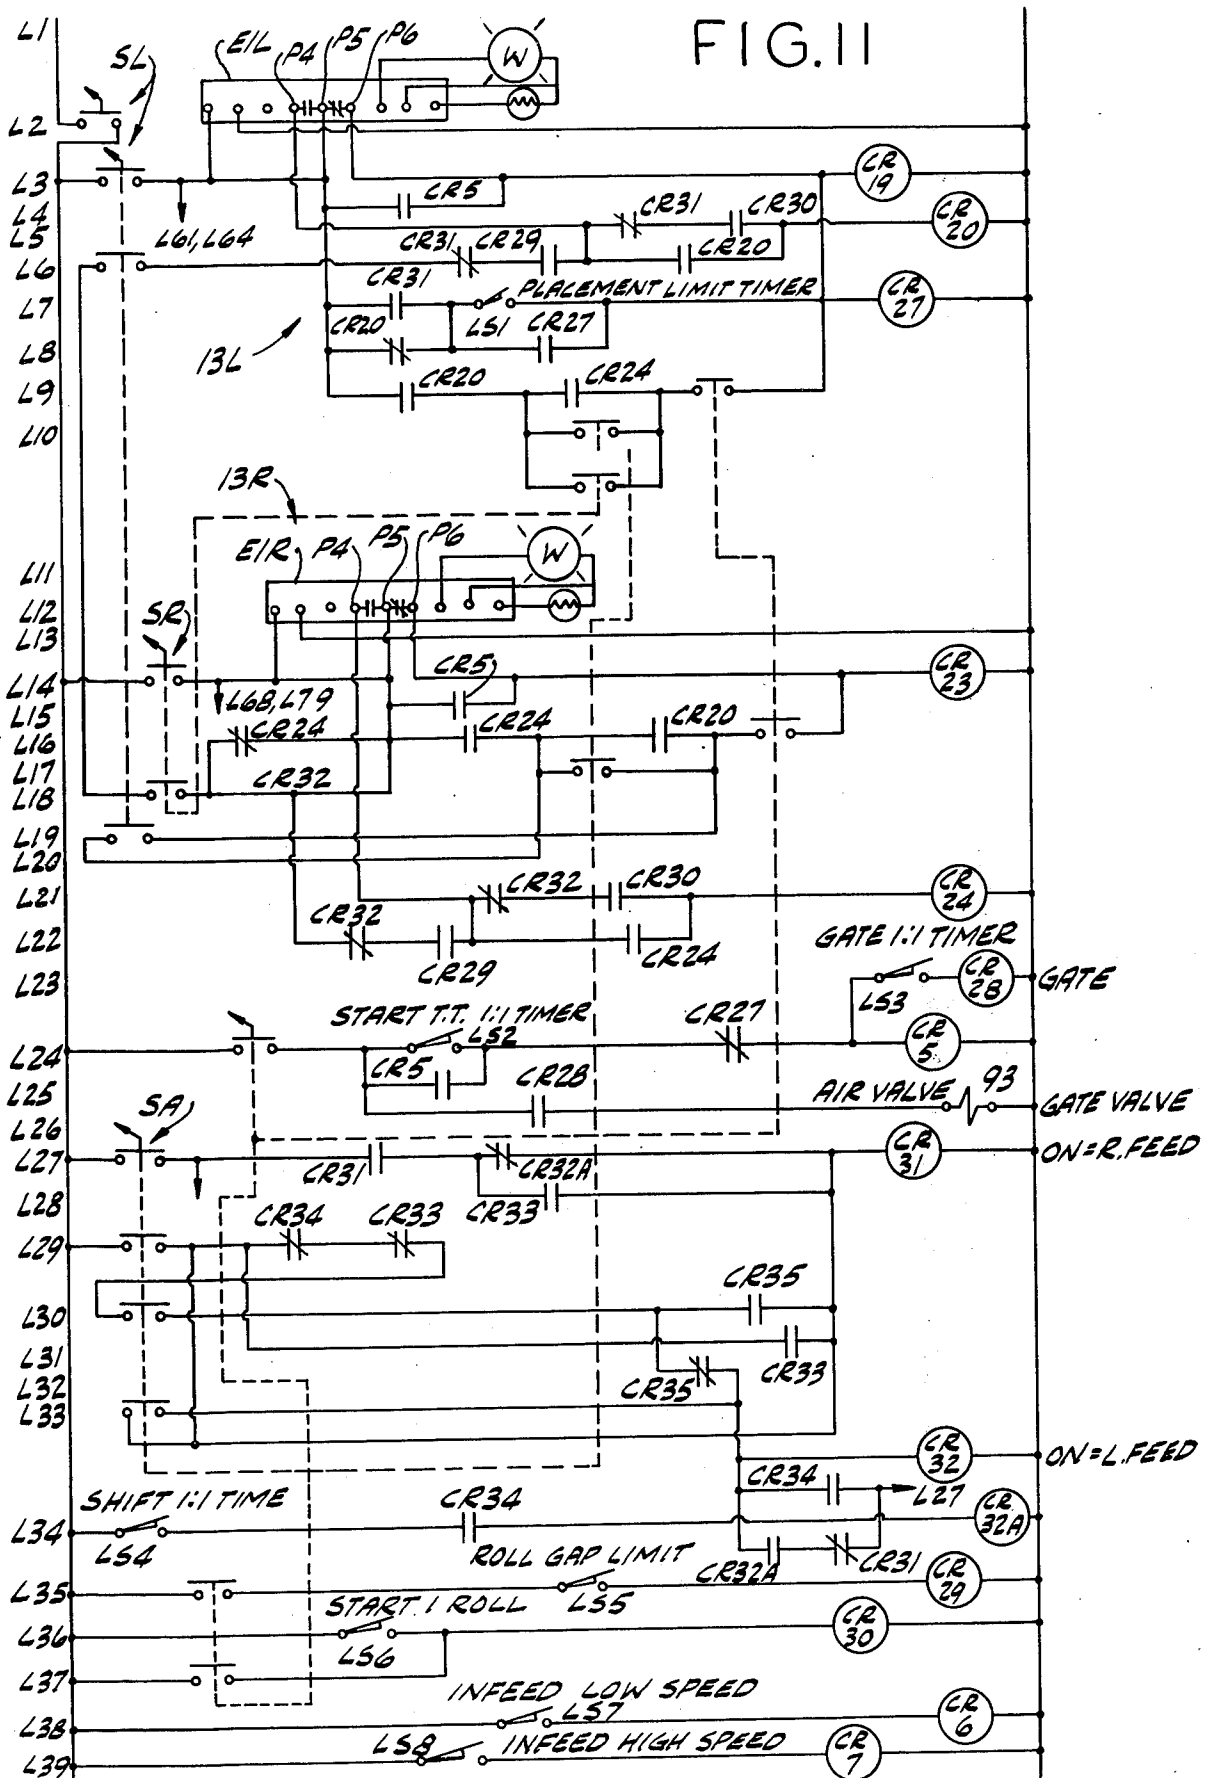 FIG.11
L1
SL
E1L
P4
P5
P6
W
L2
L3
CR
19
CR5
L4
L5
L61, L64
CR31
CR30
CR
20
CR31
CR29
CR20
L6
CR31
PLACEMENT LIMIT TIMER
L7
LS1
CR27
CR
27
CR20
L8
13L
CR20
CR24
L9
L10
13R
E1R
P4
P5
P6
W
L11
L12
L13
SR
CR5
CR
23
L14
L68, L79
L15
CR24
CR24
CR20
L16
L17
CR32
L18
L19
L20
CR32
CR30
CR
24
L21
CR32
L22
GATE 1:1 TIMER
CR29
CR24
L23
LS3
CR
28
GATE
START T.T. 1:1 TIMER
LS2
CR27
CR
5
L24
CR5
CR28
L25
AIR VALVE
93
GATE VALVE
SA
L26
L27
CR
31
ON=R.FEED
CR31
CR32A
L28
CR33
CR34
CR33
L29
CR35
L30
L31
CR33
L32
CR35
L33
CR
32
ON=L.FEED
CR34
L27
SHIFT 1:1 TIME
CR34
CR
32A
L34
LS4
ROLL GAP LIMIT
CR32A
CR31
L35
LS5
CR
29
START 1 ROLL
L36
LS6
CR
30
L37
INFEED LOW SPEED
L38
LS7
CR
6
LS8
INFEED HIGH SPEED
L39
CR
7